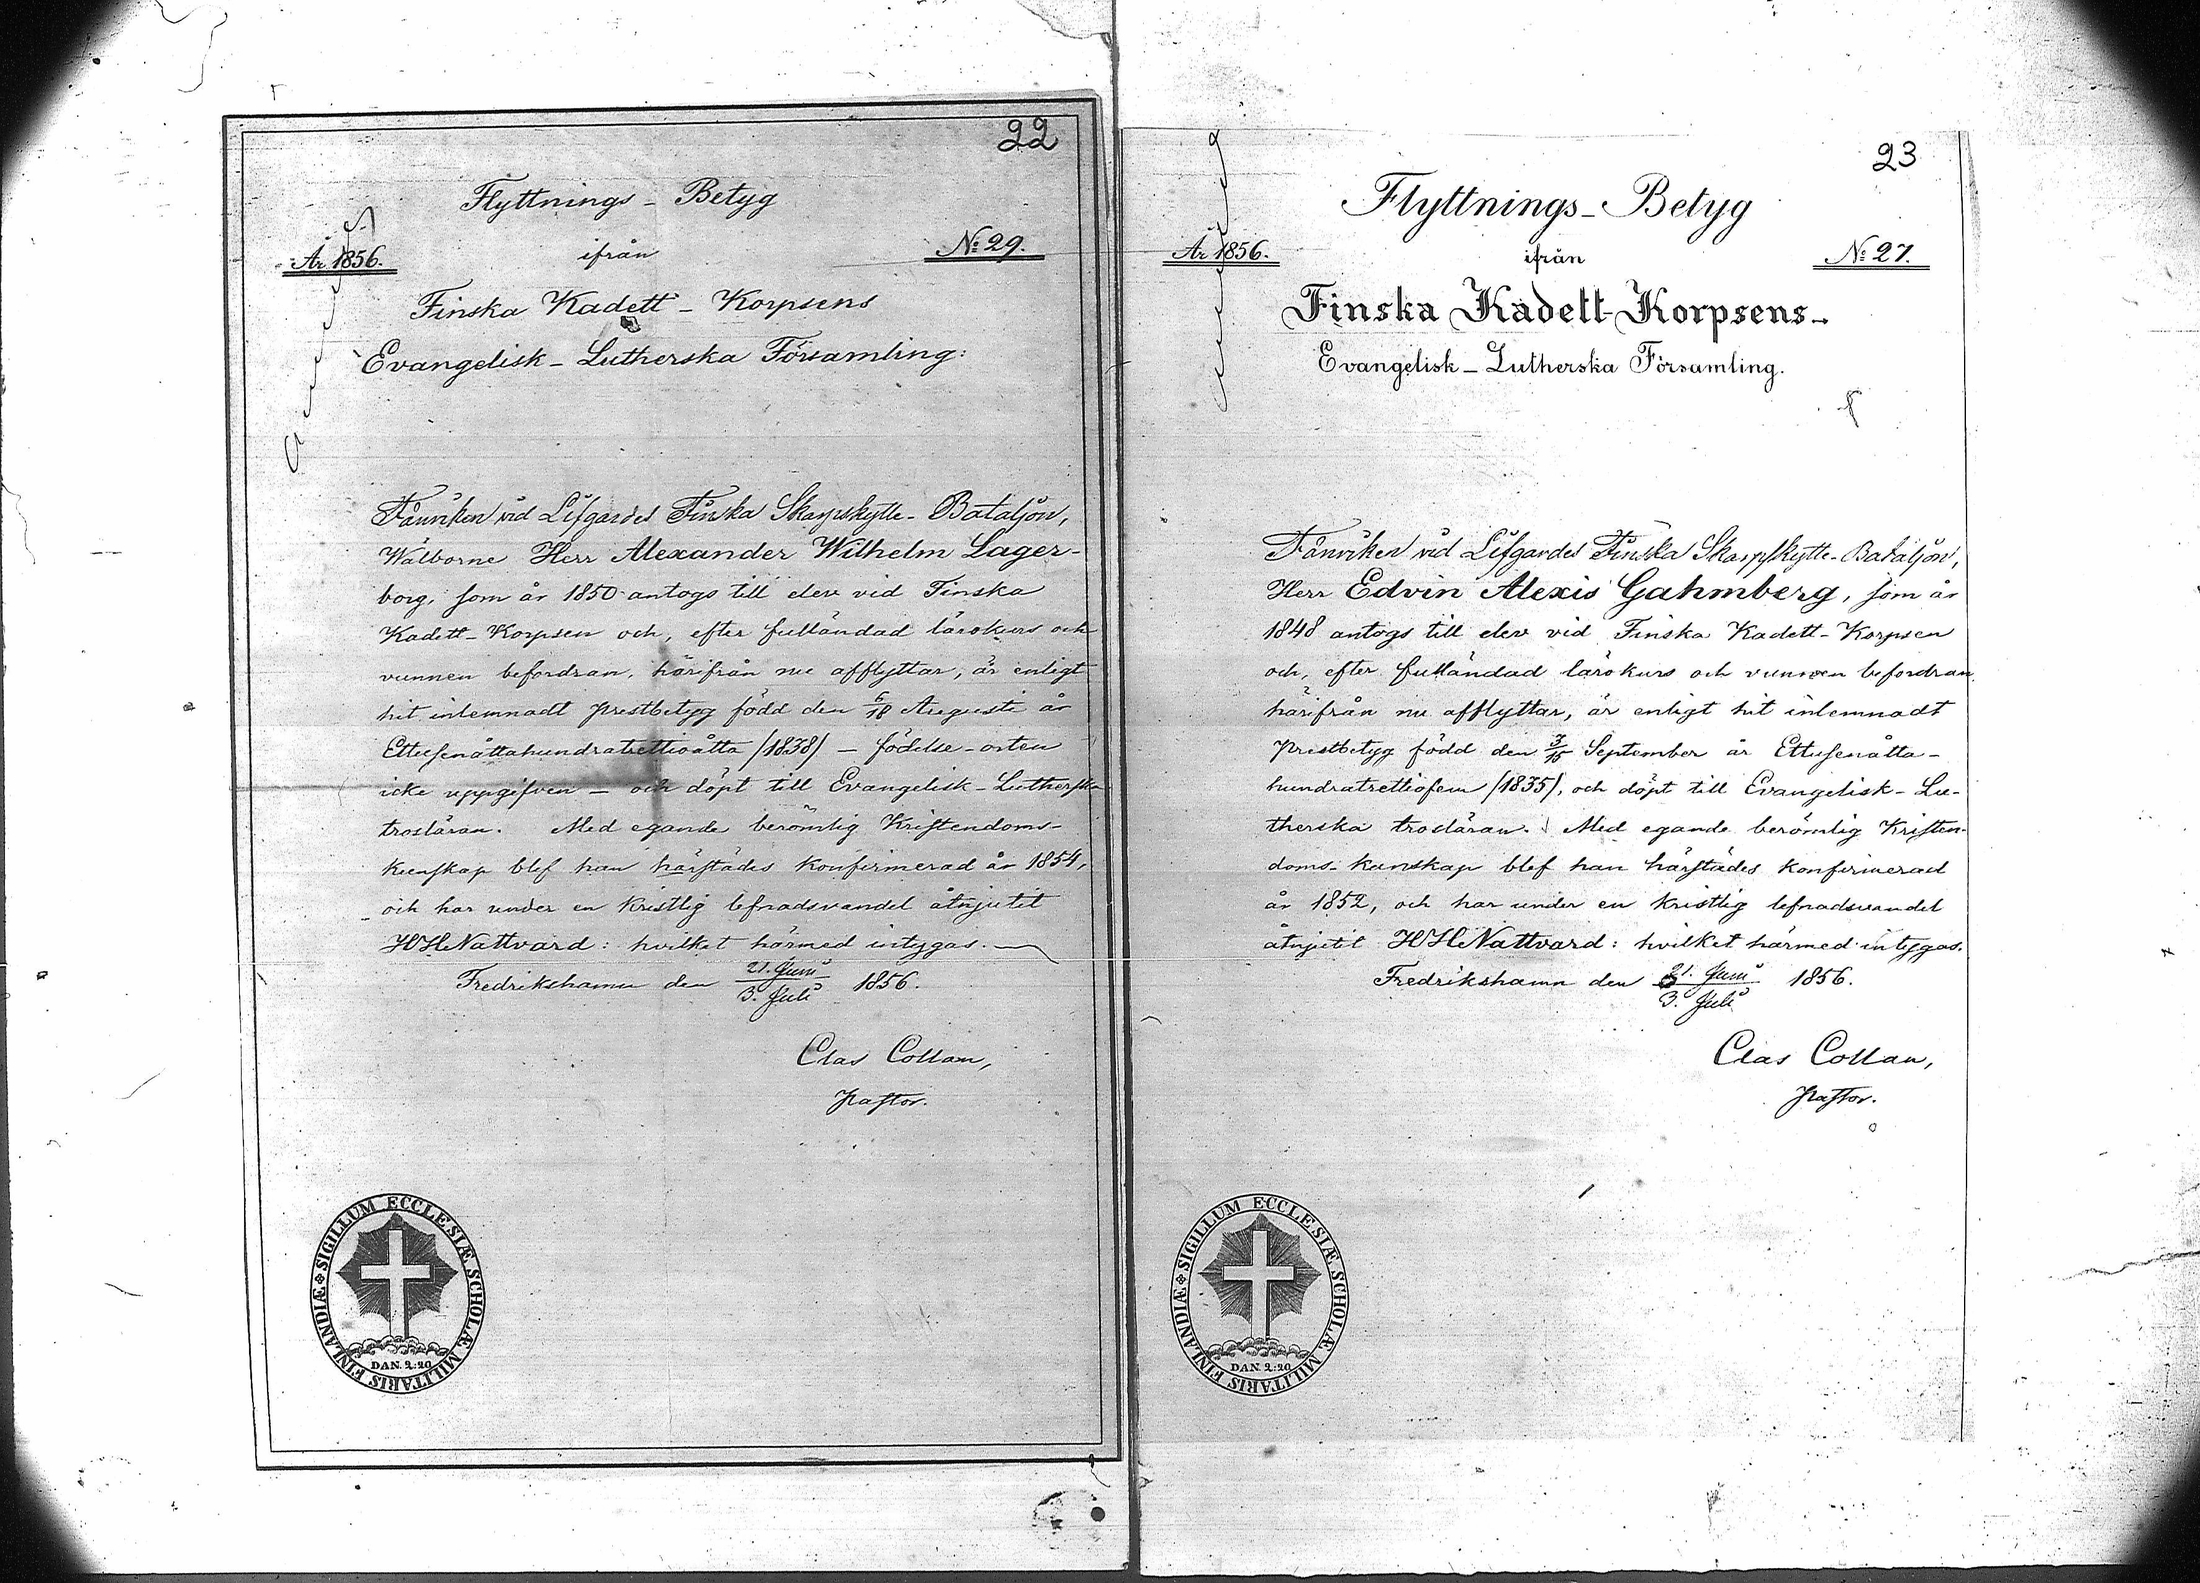 22
Flyttnings-Betyg
År 1856.
ifrån
No 29.
Finska Kadett-Korpsens
Evangelisk-Lutherska Församling:
Fänriken vid Lifgardes Finska Skarpskytte-Bataljon,
Wälborne Herr Alexander Wilhelm Lager-
borg, som år 1850 antogs till elev vid Finska
Kadett-Korpsen och, efter fulländad lärokurs och
vunnen befordran, härifrån nu afflyttar, är enligt
hit inlemnadt prestbetyg född den 6/18 Augusti år
Ettusenåttahundratrettioåtta (1838) - födelse-orten
icke uppgifven - och döpt till Evangelisk-Lutherska
trosläran. Med egande berömlig Kristendoms-
kunskap blef han härstädes konfirmerad år 1854,
och har under en kristlig lefnadsvandel åtnjutit
HHNattvard: hvilket härmed intygas.
Fredrikshamn den 21. Juni / 3. Juli 1856.
Clas Collan,
Pastor.
SIGILLUM ECCLESIÆ SCHOLÆ MILITARIS FINLANDIÆ
DAN. 2:20
23
Flyttnings-Betyg
År 1856.
ifrån
No 27.
Finska Kadett-Korpsens
Evangelisk-Lutherska Församling.
Fänriken vid Lifgardes Finska Skarpskytte-Bataljon,
Herr Edvin Alexis Gahmberg, som år
1848 antogs till elev vid Finska Kadett-Korpsen
och, efter fulländad lärokurs och vunnen befordran
härifrån nu afflyttar, är enligt hit inlemnadt
prestbetyg född den 3/15 September år Ettusenåtta-
hundratrettiofem (1835), och döpt till Evangelisk-Lu-
therska trosläran. Med egande berömlig Kristen-
doms-kunskap blef han härstädes konfirmerad
år 1852, och har under en kristlig lefnadsvandel
åtnjutit HHNattvard: hvilket härmed intygas.
Fredrikshamn den 21. Juni / 3. Juli 1856.
Clas Collan,
Pastor.
SIGILLUM ECCLESIÆ SCHOLÆ MILITARIS FINLANDIÆ
DAN. 2:20